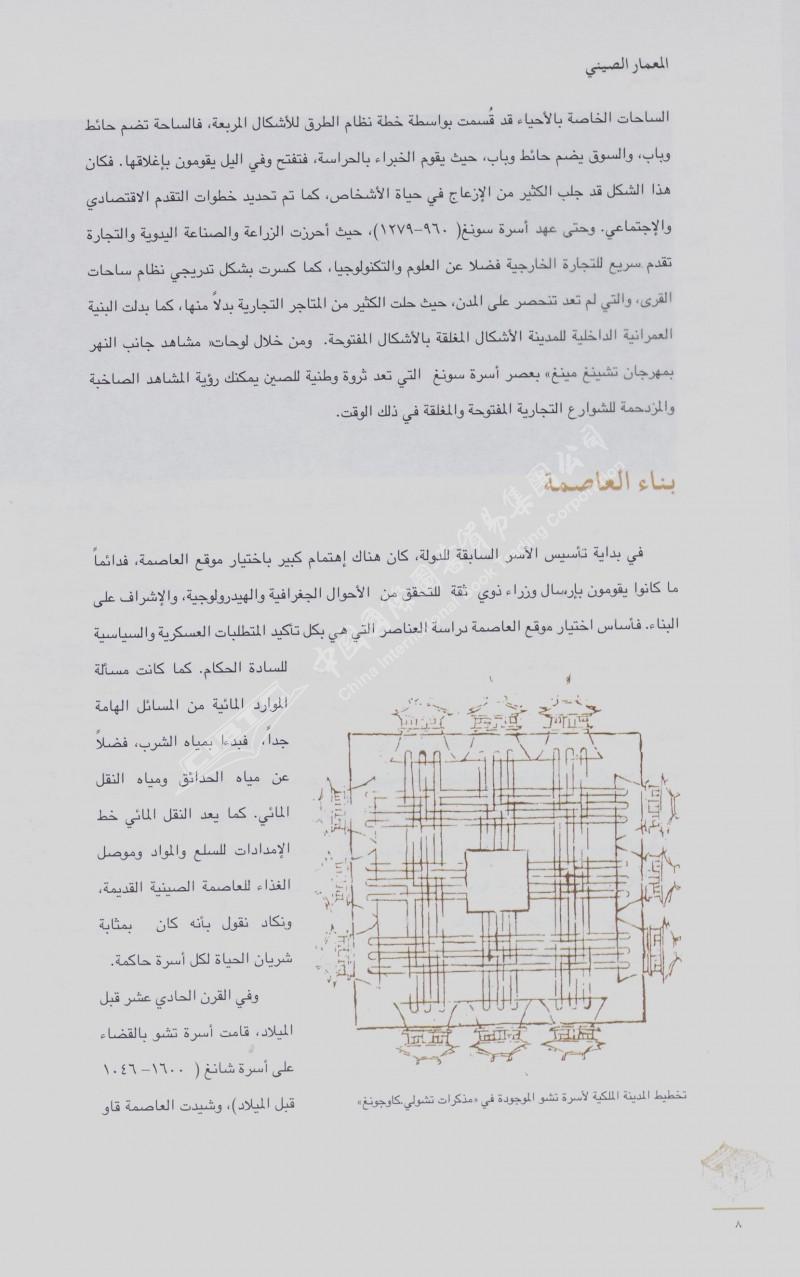 المعمار الصيني
الساحات الخاصة بالأحياء قد قُسمت بواسطة خطة نظام الطرق للأشكال المربعة، فالساحة تضم حائط
وباب، والسوق يضم حائط وباب، حيث يقوم الخبراء بالحراسة، فتفتح وفي اليل يقومون بإغلاقها. فكان
هذا الشكل قد جلب الكثير من الإزعاج في حياة الأشخاص، كما تم تحديد خطوات التقدم الاقتصادي
والإجتماعي. وحتى عهد أسرة سونغ( ٩٦٠–١٢٧٩)، حيث أحرزت الزراعة والصناعة اليدوية والتجارة
تقدم سريع للتجارة الخارجية فضلا عن العلوم والتكنولوجيا، كما كسرت بشكل تدريجي نظام ساحات
القرى، والتي لم تعد تنحصر على المدن، حيث حلت الكثير من المتاجر التجارية بدلاً منها، كما بدلت البنية
العمرانية الداخلية للمدينة الأشكال المغلقة بالأشكال المفتوحة. ومن خلال لوحات« مشاهد جانب النهر
بمهرجان تشينغ مينغ» بعصر أسرة سونغ التي تعد ثروة وطنية للصين يمكنك رؤية المشاهد الصاخبة
والمزدحمة للشوارع التجارية المفتوحة والمغلقة في ذلك الوقت.
بناء العاصمة
في بداية تأسيس الأسر السابقة للدولة، كان هناك إهتمام كبير باختيار موقع العاصمة، فدائماً
ما كانوا يقومون بإرسال وزراء ذوي ثقة للتحقق من الأحوال الجغرافية والهيدرولوجية، والإشراف على
البناء. فأساس اختيار موقع العاصمة دراسة العناصر التي هي بكل تأكيد المتطلبات العسكرية والسياسية
للسادة الحكام. كما كانت مسألة
الموارد المائية من المسائل الهامة
جداً، فبدءا بمياه الشرب، فضلاً
عن مياه الحدائق ومياه النقل
المائي. كما يعد النقل المائي خط
الإمدادات للسلع والمواد وموصل
الغذاء للعاصمة الصينية القديمة،
ونكاد نقول بأنه كان بمثابة
شريان الحياة لكل أسرة حاكمة.
وفي القرن الحادي عشر قبل
الميلاد، قامت أسرة تشو بالقضاء
على أسرة شانغ ( ١٦٠٠– ١٠٤٦
قبل الميلاد)، وشيدت العاصمة قاو
تخطيط المدينة الملكية لأسرة تشو الموجودة في «مذكرات تشولي.كاوجونغ»
٨
中国国际图书贸易集团公司
China International Book Trading Corporation